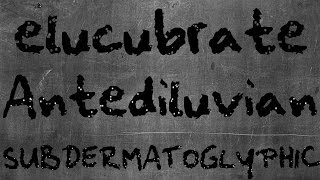 elucubrate
Antediluvian
SUBDERMATOGLYPHIC